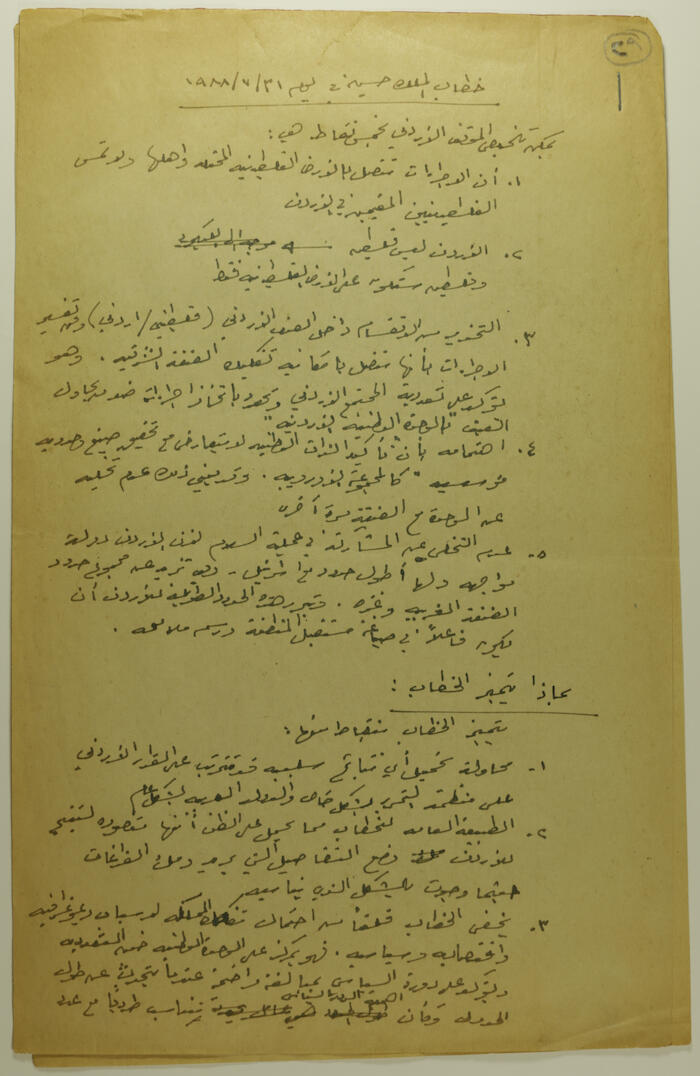 ٢٩
خطاب الملك حسين في يوم ٣١/٧/١٩٨٨
يمكن تلخيص الموقف الأردني بخمس نقاط هي:
١. أن الاجراءات تتصل بالأرض الفلسطينية المحتلة وأهلها ولا تمس
الفلسطينيين المقيمين في الأردن
٢. الأردن ليس فلسطين
وفلسطين ستكون على الأرض الفلسطينية فقط
٣. التحذير من الانقسام داخل الصف الأردني (فلسطيني/اردني) وتفسير
الاجراءات بأنها تتصل بإمكانية تفكيك الضفة الشرقية. وهو
يؤكد على تعددية المجتمع الأردني باتخاذ اجراءات ضد من يحاول
العبث "بالوحدة الوطنية الأردنية"
٤. اهتمامه بأن تأكيد الذات الوطنية لا يتعارض مع تحقيق صيغ وحدوية
مؤسسية "كالمجموعة الأوروبية. وقد يعني ذلك عدم تخليه
عن الوحدة مع الضفة مرة أخرى
٥- عدم التخلي عن المشاركة في عملية السلام لأن الأردن دولة
مواجهة ولها أطول حدود مع اسرائيل - تزيد عن مجموع حدود
الضفة الغربية وغزة. وتبرر هذه الحدود الطويلة للأردن أن
يكون فاعلاً في صياغة مستقبل المنطقة ورسم ملامحه.
بماذا يتميز الخطاب:
يتميز الخطاب بنقاط منها:
١- محاولة تحميل أي نتائج سلبية قد تترتب على القرار الأردني
على منظمة التحرير بشكل خاص والدول العربية بشكل عام
٢- الطبيعة العامة للخطاب مما يحمل على الظن أنها مقصودة لتتيح
للأردن وضع التفاصيل التي يريد وملء الفراغات
حيثما وجدت بالشكل الذي يناسبه
٣. يخفي الخطاب قلقاً من احتمال تفكك المملكة لأسباب ديمغرافية
واقتصادية وسياسية. فهو يركز على الوحدة الوطنية ضمن التعددية
ويؤكد على دوره السياسي بمبالغة واضحة عندما يتحدث عن طول
الحدود وكأن أهمية الدور السياسي تتناسب طردياً مع عدد